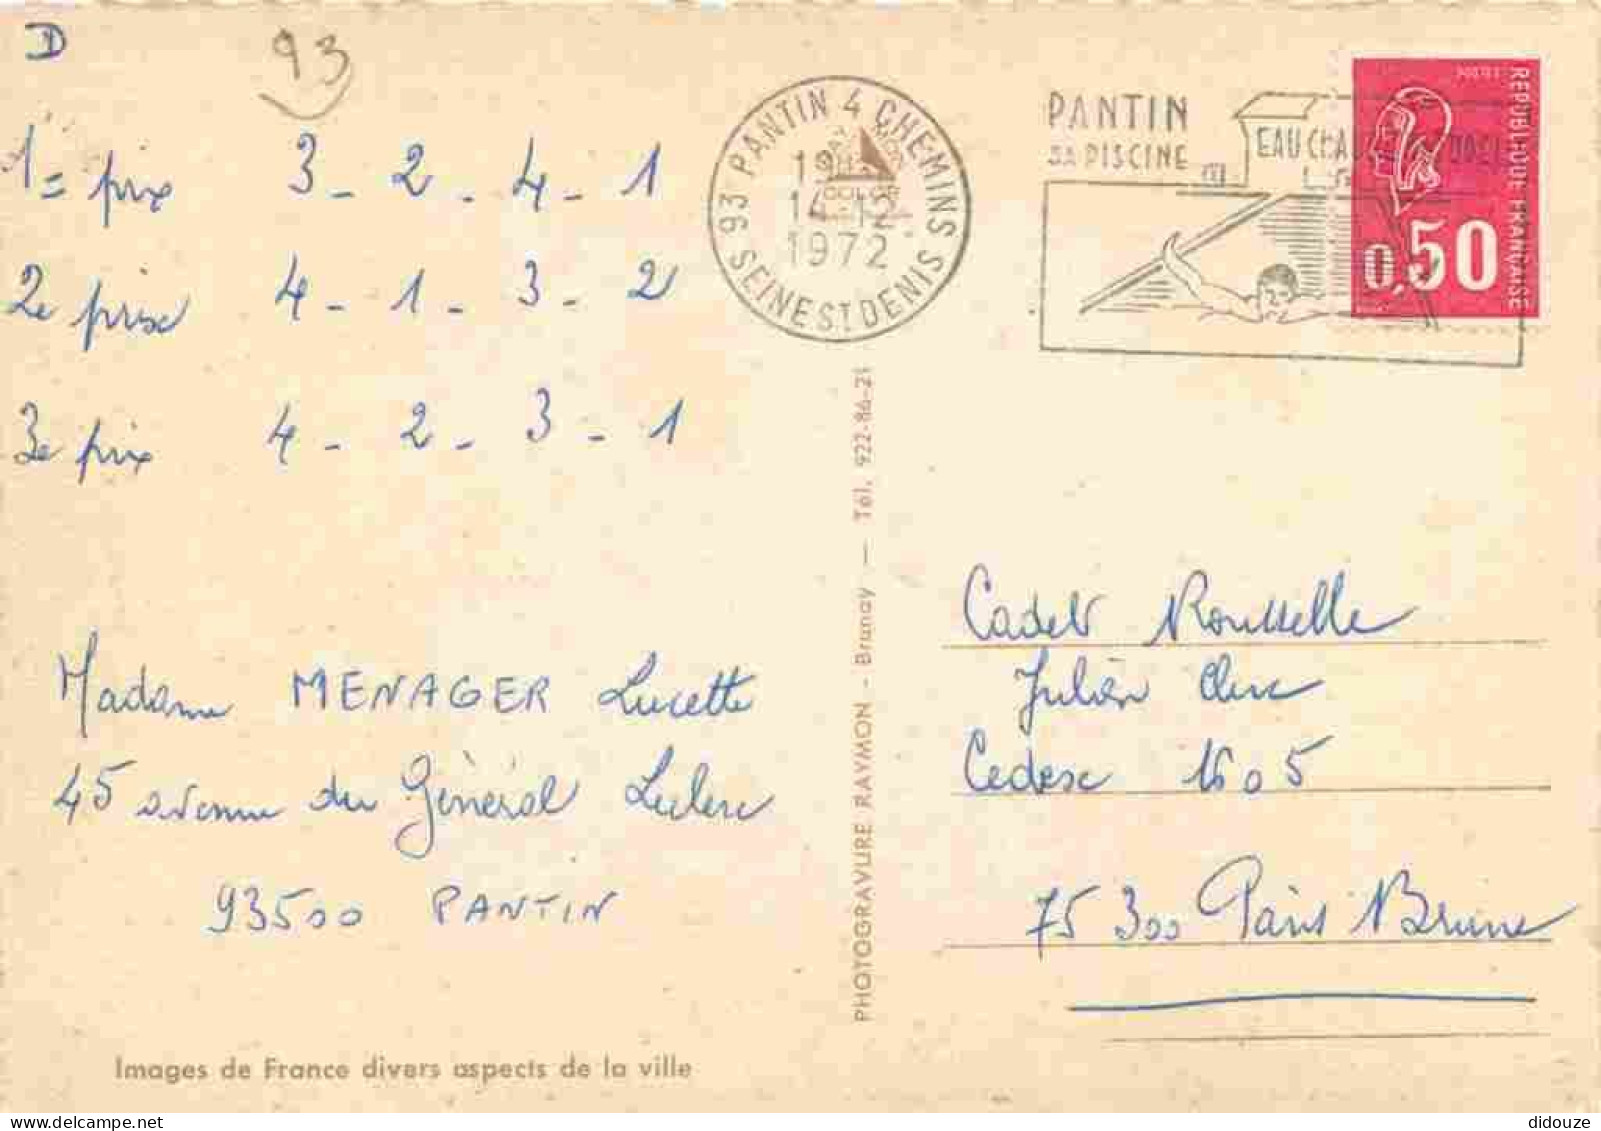 D
93
1= prix 3 - 2 - 4 - 1
2e prix 4 - 1 - 3 - 2
3e prix 4 - 2 - 3 - 1
Madame MENAGER Lucette
45 avenue du Général Leclerc
93500 PANTIN
Images de France divers aspects de la ville
PHOTOGRAVURE RAYMON - Brunoy — Tél. 922-86-21
93 PANTIN 4 CHEMINS
19
14-12
1972
SEINE ST DENIS
COLOR
PANTIN
SA PISCINE
EAU
REPUBLIQUE FRANÇAISE
POSTES
0,50
Cadet Rousselle
Julien Clerc
Cedex 1605
75 300 Paris Brune
didouze